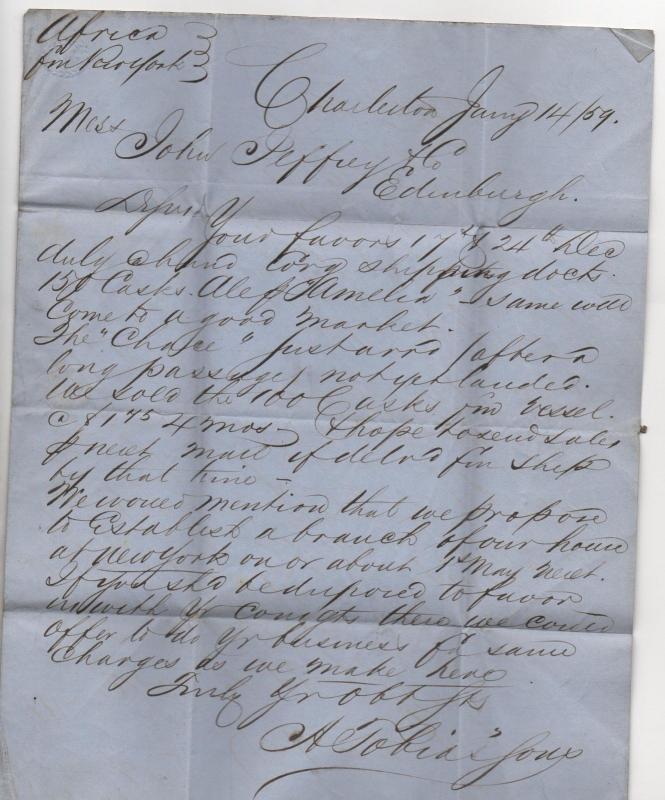 Africa
fm New York
Charleston Jany 14/59.
Mess John Jeffrey & Co
Edinburgh.
Dr Sirs
Your favors 17th & 24th Dec
duly @ hand Cov'g shipping docts.
150 Casks Ale p "Amelia" - same will
Come to a good market.
The "Chace" just arr'd (after a
long passage) not yet landed.
We sold the 100 Casks fm vessel.
@ $1 75 4 mos - & hope to send sales
p next mail if deliv'd fm ship
by that time -
We would mention that we propose
to Establish a branch of our house
at New York on or about 1st May next.
If you sh'd be disposed to favor
us with yr consigts there we could
offer to do yr business @ same
Charges as we make here
Truly Yr Obt Sts
A Tobias Sons